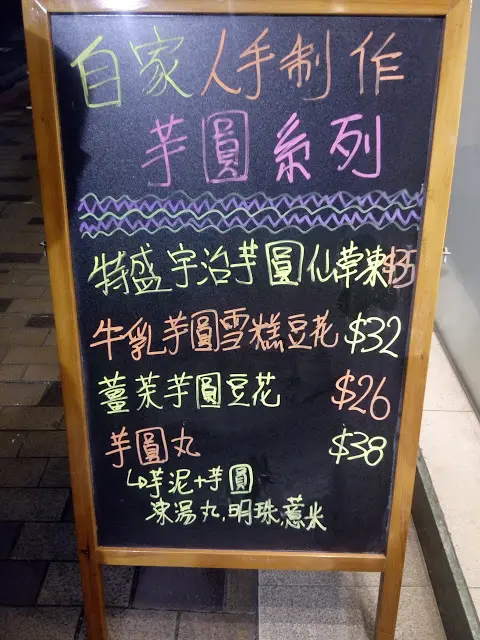 自家人手制作
芋圓系列
特盛宇治芋圓仙草凍
牛乳芋圓雪糕豆花 $32
薑茶芋圓豆花 $26
芋圓丸 $38
↳芋泥+芋圓
凍湯丸.明珠.薏米